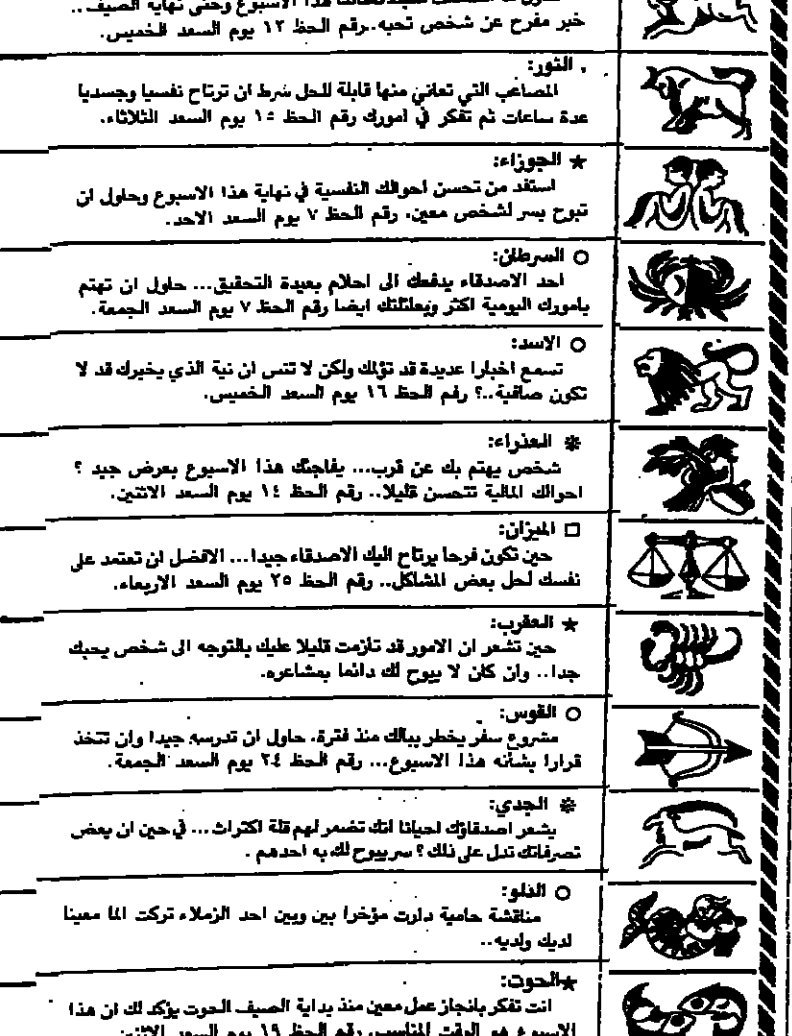 هذا الاسبوع وحتى نهاية الصيف..
خبر مفرح عن شخص تحبه..رقم الحظ ١٢ يوم السعد الخميس.
الثور:
المصاعب التي تعاني منها قابلة للحل شرط ان ترتاح نفسيا وجسديا
عدة ساعات ثم تفكر في امورك رقم الحظ ١٥ يوم السعد الثلاثاء.
★ الجوزاء:
استفد من تحسن احوالك النفسية في نهاية هذا الاسبوع وحاول ان
تبوح بسر لشخص معين. رقم الحظ ٧ يوم السعد الاحد.
○ السرطان:
احد الاصدقاء يدفعك الى احلام بعيدة التحقيق... حاول ان تهتم
بامورك اليومية اكثر وبعائلتك ايضا رقم الحظ ٧ يوم السعد الجمعة.
○ الاسد:
تسمع اخبارا عديدة قد تؤلمك ولكن لا تنس ان نية الذي يخبرك قد لا
تكون صافية..؟ رقم الحظ ١٦ يوم السعد الخميس.
❊ العذراء:
شخص يهتم بك عن قرب... يفاجئك هذا الاسبوع بعرض جيد ؟
احوالك المالية تتحسن قليلا.. رقم الحظ ١٤ يوم السعد الاثنين.
□ الميزان:
حين تكون فرحا يرتاح اليك الاصدقاء جيدا... الافضل ان تعتمد على
نفسك لحل بعض المشاكل.. رقم الحظ ٢٥ يوم السعد الاربعاء.
★ العقرب:
حين تشعر ان الامور قد تأزمت قليلا عليك بالتوجه الى شخص يحبك
جدا.. وان كان لا يبوح لك دائما بمشاعره.
○ القوس:
مشروع سفر يخطر ببالك منذ فترة. حاول ان تدرسه جيدا وان تتخذ
قرارا بشأنه هذا الاسبوع... رقم الحظ ٢٤ يوم السعد الجمعة.
❊ الجدي:
يشعر اصدقاؤك احيانا انك تضمر لهم قلة اكتراث... في حين ان بعض
تصرفاتك تدل على ذلك ؟ سر يبوح لك به احدهم .
○ الدلو:
مناقشة حامية دارت مؤخرا بين وبين احد الزملاء تركت الما معينا
لديك ولديه..
★الحوت:
انت تفكر بانجاز عمل معين منذ بداية الصيف الحوت يؤكد لك ان هذا
الاسبوع هو الوقت المناسب. رقم الحظ ١٩ يوم السعد الاثنين.